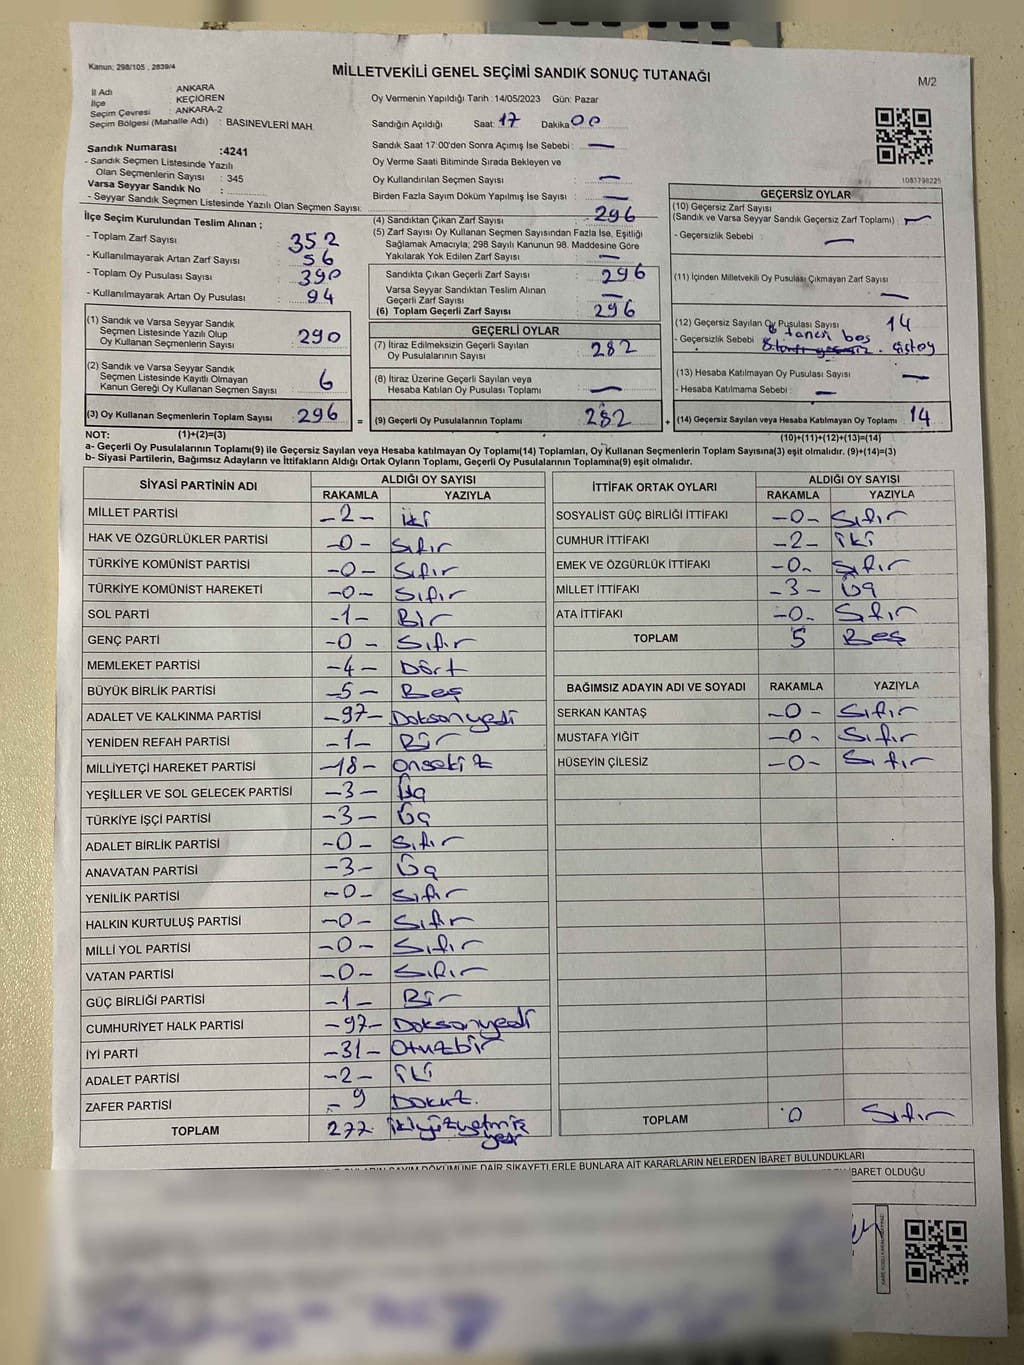 Kanun: 298/105 . 2839/4
MİLLETVEKİLİ GENEL SEÇİMİ SANDIK SONUÇ TUTANAĞI
M/2
İl Adı : ANKARA
İlçe : KEÇİÖREN
Seçim Çevresi : ANKARA-2
Seçim Bölgesi (Mahalle Adı) : BASINEVLERİ MAH.
Oy Vermenin Yapıldığı Tarih : 14/05/2023 Gün: Pazar
Sandığın Açıldığı Saat: 17 Dakika 00
Sandık Saat 17:00'den Sonra Açımış İse Sebebi : —
Oy Verme Saati Bitiminde Sırada Bekleyen ve
Oy Kullandırılan Seçmen Sayısı : —
Birden Fazla Sayım Döküm Yapılmış İse Sayısı : —
1083798225
Sandık Numarası :4241
- Sandık Seçmen Listesinde Yazılı
Olan Seçmenlerin Sayısı : 345
Varsa Seyyar Sandık No :
- Seyyar Sandık Seçmen Listesinde Yazılı Olan Seçmen Sayısı:
İlçe Seçim Kurulundan Teslim Alınan ;
- Toplam Zarf Sayısı : 352
- Kullanılmayarak Artan Zarf Sayısı : 56
- Toplam Oy Pusulası Sayısı : 390
- Kullanılmayarak Artan Oy Pusulası : 94
(1) Sandık ve Varsa Seyyar Sandık
Seçmen Listesinde Yazılı Olup
Oy Kullanan Seçmenlerin Sayısı : 290
(2) Sandık ve Varsa Seyyar Sandık
Seçmen Listesinde Kayıtlı Olmayan
Kanun Gereği Oy Kullanan Seçmen Sayısı : 6
(3) Oy Kullanan Seçmenlerin Toplam Sayısı : 296
(4) Sandıktan Çıkan Zarf Sayısı : 296
(5) Zarf Sayısı Oy Kullanan Seçmen Sayısından Fazla İse, Eşitliği
Sağlamak Amacıyla; 298 Sayılı Kanunun 98. Maddesine Göre
Yakılarak Yok Edilen Zarf Sayısı : —
Sandıkta Çıkan Geçerli Zarf Sayısı : 296
Varsa Seyyar Sandıktan Teslim Alınan
Geçerli Zarf Sayısı : —
(6) Toplam Geçerli Zarf Sayısı : 296
GEÇERLİ OYLAR
(7) İtiraz Edilmeksizin Geçerli Sayılan
Oy Pusulalarının Sayısı : 282
(8) İtiraz Üzerine Geçerli Sayılan veya
Hesaba Katılan Oy Pusulası Toplamı : —
= (9) Geçerli Oy Pusulalarının Toplamı : 282
GEÇERSİZ OYLAR
(10) Geçersiz Zarf Sayısı
(Sandık ve Varsa Seyyar Sandık Geçersiz Zarf Toplamı) : —
- Geçersizlik Sebebi : —
(11) İçinden Milletvekili Oy Pusulası Çıkmayan Zarf Sayısı : —
(12) Geçersiz Sayılan Oy Pusulası Sayısı : 14
- Geçersizlik Sebebi : 8 tanesi boş
(13) Hesaba Katılmayan Oy Pusulası Sayısı : —
- Hesaba Katılmama Sebebi : —
+ (14) Geçersiz Sayılan veya Hesaba Katılmayan Oy Toplamı : 14
NOT: (1)+(2)=(3)
(10)+(11)+(12)+(13)=(14)
a- Geçerli Oy Pusulalarının Toplamı(9) ile Geçersiz Sayılan veya Hesaba katılmayan Oy Toplamı(14) Toplamları, Oy Kullanan Seçmenlerin Toplam Sayısına(3) eşit olmalıdır. (9)+(14)=(3)
b- Siyasi Partilerin, Bağımsız Adayların ve İttifakların Aldığı Ortak Oyların Toplamı, Geçerli Oy Pusulalarının Toplamına(9) eşit olmalıdır.
SİYASİ PARTİNİN ADI ALDIĞI OY SAYISI
RAKAMLA YAZIYLA
MİLLET PARTİSİ -2- iki
HAK VE ÖZGÜRLÜKLER PARTİSİ -0- Sıfır
TÜRKİYE KOMÜNİST PARTİSİ -0- Sıfır
TÜRKİYE KOMÜNİST HAREKETİ -0- Sıfır
SOL PARTİ -1- Bir
GENÇ PARTİ -0- Sıfır
MEMLEKET PARTİSİ -4- Dört
BÜYÜK BİRLİK PARTİSİ -5- Beş
ADALET VE KALKINMA PARTİSİ -97- Doksanyedi
YENİDEN REFAH PARTİSİ -1- Bir
MİLLİYETÇİ HAREKET PARTİSİ -18- Onsekiz
YEŞİLLER VE SOL GELECEK PARTİSİ -3- Üç
TÜRKİYE İŞÇİ PARTİSİ -3- Üç
ADALET BİRLİK PARTİSİ -0- Sıfır
ANAVATAN PARTİSİ -3- Üç
YENİLİK PARTİSİ -0- Sıfır
HALKIN KURTULUŞ PARTİSİ -0- Sıfır
MİLLİ YOL PARTİSİ -0- Sıfır
VATAN PARTİSİ -0- Sıfır
GÜÇ BİRLİĞİ PARTİSİ -1- Bir
CUMHURİYET HALK PARTİSİ -97- Doksanyedi
İYİ PARTİ -31- Otuzbir
ADALET PARTİSİ -2- İki
ZAFER PARTİSİ - 9 Dokuz.
TOPLAM 277 ikiyüzyetmiş
yedi
İTTİFAK ORTAK OYLARI ALDIĞI OY SAYISI
RAKAMLA YAZIYLA
SOSYALİST GÜÇ BİRLİĞİ İTTİFAKI -0- Sıfır
CUMHUR İTTİFAKI -2- iki
EMEK VE ÖZGÜRLÜK İTTİFAKI -0- Sıfır
MİLLET İTTİFAKI -3- Üç
ATA İTTİFAKI -0- Sıfır
TOPLAM 5 Beş
BAĞIMSIZ ADAYIN ADI VE SOYADI RAKAMLA YAZIYLA
SERKAN KANTAŞ -0- Sıfır
MUSTAFA YİĞİT -0- Sıfır
HÜSEYİN ÇİLESİZ -0- Sıfır
TOPLAM 0 Sıfır
DÖKÜMÜNE DAİR ŞİKAYETLERLE BUNLARA AİT KARARLARIN NELERDEN İBARET BULUNDUKLARI
İBARET OLDUĞU